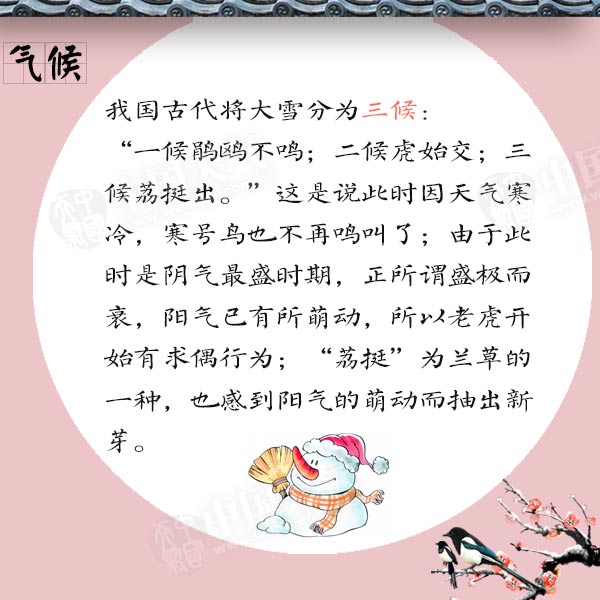 气候
我国古代将大雪分为三候：
“一候鹃鸥不鸣；二候虎始交；三
候荔挺出。”这是说此时因天气寒
冷，寒号鸟也不再鸣叫了；由于此
时是阴气最盛时期，正所谓盛极而
衰，阳气已有所萌动，所以老虎开
始有求偶行为；“荔挺”为兰草的
一种，也感到阳气的萌动而抽出新
芽。